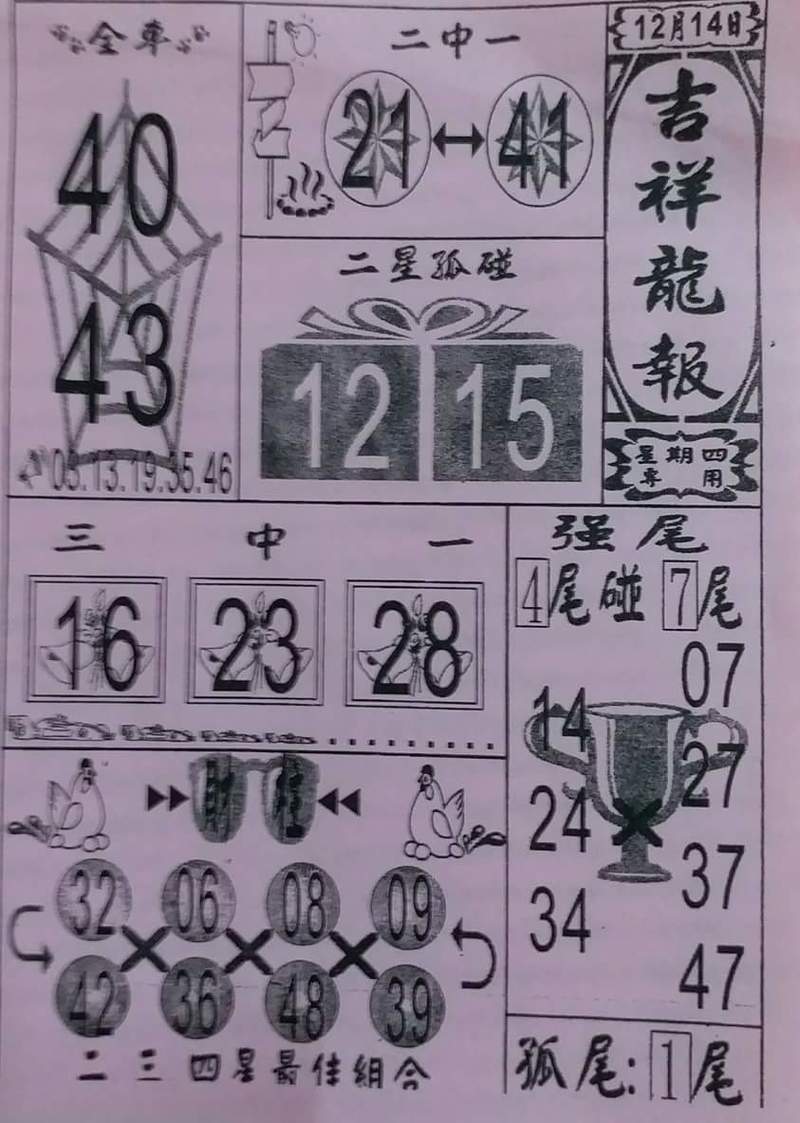 12月14日
吉祥龍報
星期四
專用
全車
40
43
03.13.19.35.46
二中一
21 41
二星孤碰
12 15
三中一
16 23 28
强尾
4尾碰7尾
07
14
27
24
37
34
47
財
32 06 08 09
42 36 48 39
二三四星最佳組合
孤尾:1尾